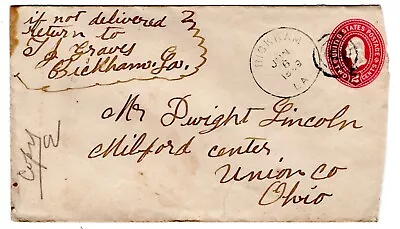 if not delivered
return to
J. Graves
Bickham, La.
BICKHAM
JAN
6
LA.
UNITED STATES POSTAGE
2 CENTS 2
Mr Dwight Lincoln
Milford center
Union co
Ohio